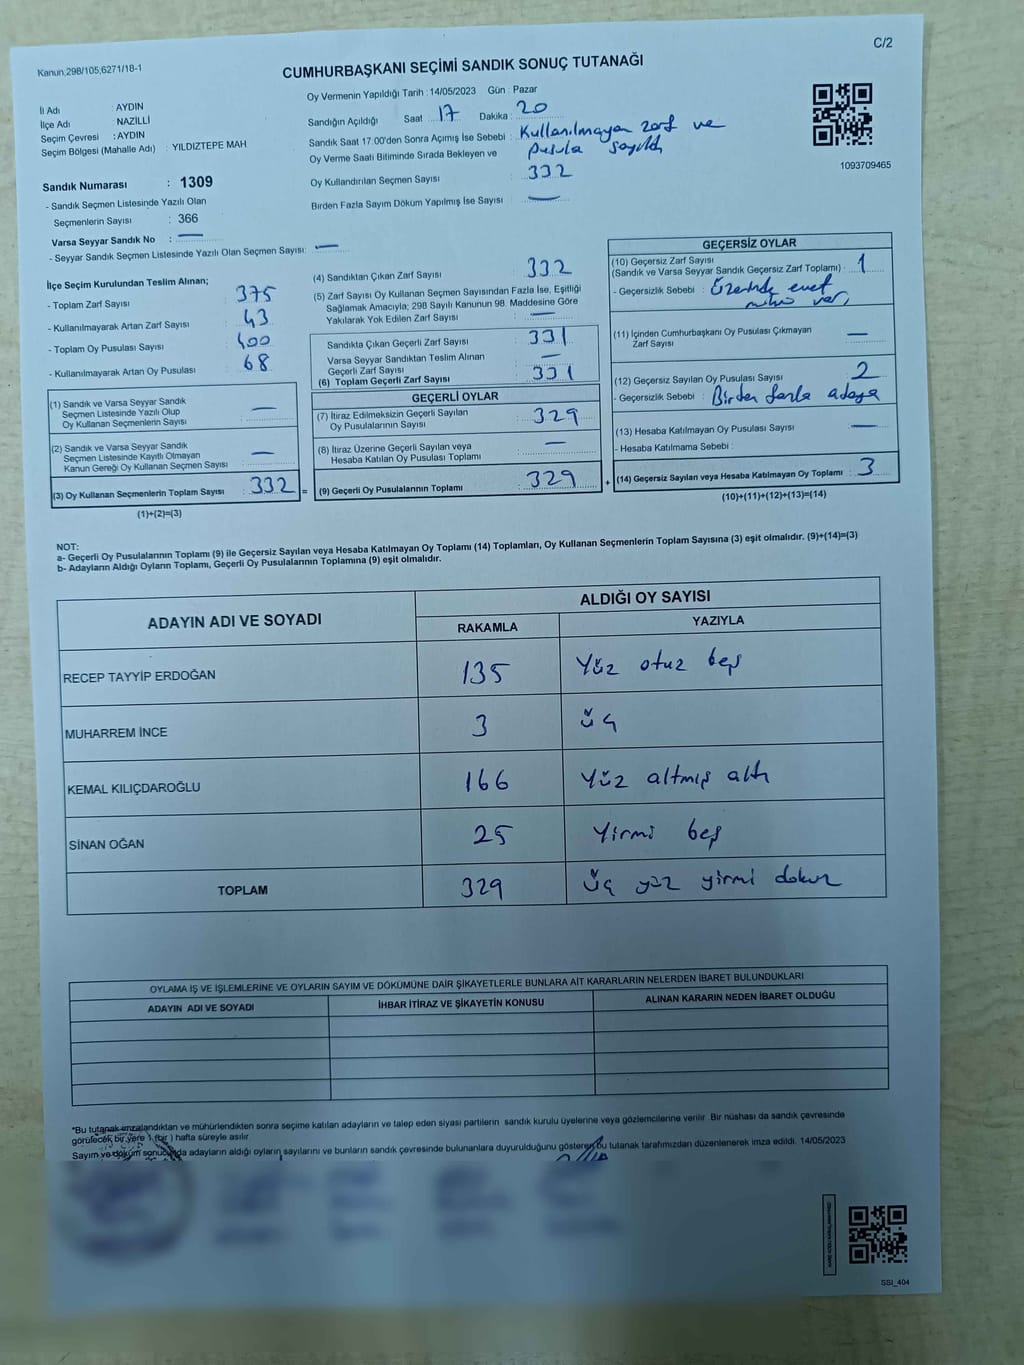 C/2
Kanun,298/105,6271/18-1
CUMHURBAŞKANI SEÇİMİ SANDIK SONUÇ TUTANAĞI
İl Adı : AYDIN
İlçe Adı : NAZİLLİ
Seçim Çevresi : AYDIN
Seçim Bölgesi (Mahalle Adı) : YILDIZTEPE MAH
Sandık Numarası : 1309
- Sandık Seçmen Listesinde Yazılı Olan
Seçmenlerin Sayısı : 366
Varsa Seyyar Sandık No : —
- Seyyar Sandık Seçmen Listesinde Yazılı Olan Seçmen Sayısı: —
Oy Vermenin Yapıldığı Tarih : 14/05/2023 Gün : Pazar
Sandığın Açıldığı Saat : 17 Dakika : 20
Sandık Saat 17:00'den Sonra Açımış İse Sebebi : Kullanılmayan zarf ve
pusula sayıldı
Oy Verme Saati Bitiminde Sırada Bekleyen ve
Oy Kullandırılan Seçmen Sayısı : 332
Birden Fazla Sayım Döküm Yapılmış İse Sayısı : —
1093709465
İlçe Seçim Kurulundan Teslim Alınan;
- Toplam Zarf Sayısı : 375
- Kullanılmayarak Artan Zarf Sayısı : 43
- Toplam Oy Pusulası Sayısı : 400
- Kullanılmayarak Artan Oy Pusulası : 68
(1) Sandık ve Varsa Seyyar Sandık
Seçmen Listesinde Yazılı Olup
Oy Kullanan Seçmenlerin Sayısı : —
(2) Sandık ve Varsa Seyyar Sandık
Seçmen Listesinde Kayıtlı Olmayan
Kanun Gereği Oy Kullanan Seçmen Sayısı : —
(3) Oy Kullanan Seçmenlerin Toplam Sayısı : 332 =
(1)+(2)=(3)
(4) Sandıktan Çıkan Zarf Sayısı : 332
(5) Zarf Sayısı Oy Kullanan Seçmen Sayısından Fazla İse, Eşitliği
Sağlamak Amacıyla; 298 Sayılı Kanunun 98. Maddesine Göre
Yakılarak Yok Edilen Zarf Sayısı : —
Sandıkta Çıkan Geçerli Zarf Sayısı : 331
Varsa Seyyar Sandıktan Teslim Alınan
Geçerli Zarf Sayısı : —
(6) Toplam Geçerli Zarf Sayısı : 331
GEÇERLİ OYLAR
(7) İtiraz Edilmeksizin Geçerli Sayılan
Oy Pusulalarının Sayısı : 329
(8) İtiraz Üzerine Geçerli Sayılan veya
Hesaba Katılan Oy Pusulası Toplamı : —
(9) Geçerli Oy Pusulalarının Toplamı : 329 +
GEÇERSİZ OYLAR
(10) Geçersiz Zarf Sayısı
(Sandık ve Varsa Seyyar Sandık Geçersiz Zarf Toplamı) : 1
- Geçersizlik Sebebi : Üzerinde evet
var,
(11) İçinden Cumhurbaşkanı Oy Pusulası Çıkmayan
Zarf Sayısı : —
(12) Geçersiz Sayılan Oy Pusulası Sayısı : 2
- Geçersizlik Sebebi : Birden fazla adaya
(13) Hesaba Katılmayan Oy Pusulası Sayısı : —
- Hesaba Katılmama Sebebi :
(14) Geçersiz Sayılan veya Hesaba Katılmayan Oy Toplamı : 3
(10)+(11)+(12)+(13)=(14)
NOT:
a- Geçerli Oy Pusulalarının Toplamı (9) ile Geçersiz Sayılan veya Hesaba Katılmayan Oy Toplamı (14) Toplamları, Oy Kullanan Seçmenlerin Toplam Sayısına (3) eşit olmalıdır. (9)+(14)=(3)
b- Adayların Aldığı Oyların Toplamı, Geçerli Oy Pusulalarının Toplamına (9) eşit olmalıdır.
ADAYIN ADI VE SOYADI ALDIĞI OY SAYISI
RAKAMLA YAZIYLA
RECEP TAYYİP ERDOĞAN 135 Yüz otuz beş
MUHARREM İNCE 3 üç
KEMAL KILIÇDAROĞLU 166 Yüz altmış altı
SİNAN OĞAN 25 Yirmi beş
TOPLAM 329 üç yüz yirmi dokuz
OYLAMA İŞ VE İŞLEMLERİNE VE OYLARIN SAYIM VE DÖKÜMÜNE DAİR ŞİKAYETLERLE BUNLARA AİT KARARLARIN NELERDEN İBARET BULUNDUKLARI
ADAYIN ADI VE SOYADI İHBAR İTİRAZ VE ŞİKAYETİN KONUSU ALINAN KARARIN NEDEN İBARET OLDUĞU
*Bu tutanak imzalandıktan ve mühürlendikten sonra seçime katılan adayların ve talep eden siyasi partilerin sandık kurulu üyelerine veya gözlemcilerine verilir. Bir nüshası da sandık çevresinde
görülecek bir yere 1 (bir) hafta süreyle asılır.
Sayım ve döküm sonucunda adayların aldığı oyların sayılarını ve bunların sandık çevresinde bulunanlara duyurulduğunu gösteren bu tutanak tarafımızdan düzenlenerek imza edildi. 14/05/2023
SSI_404